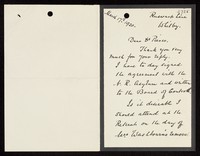 March 17th 1920.
Whitby.
Dear Dr Pierce,
Thank you very
much for your reply.
I have to day signed
the agreement with the
N. R. Asylum and written
to the Board of Control.
Is it desirable I
should attend at the
Retreat on the day of